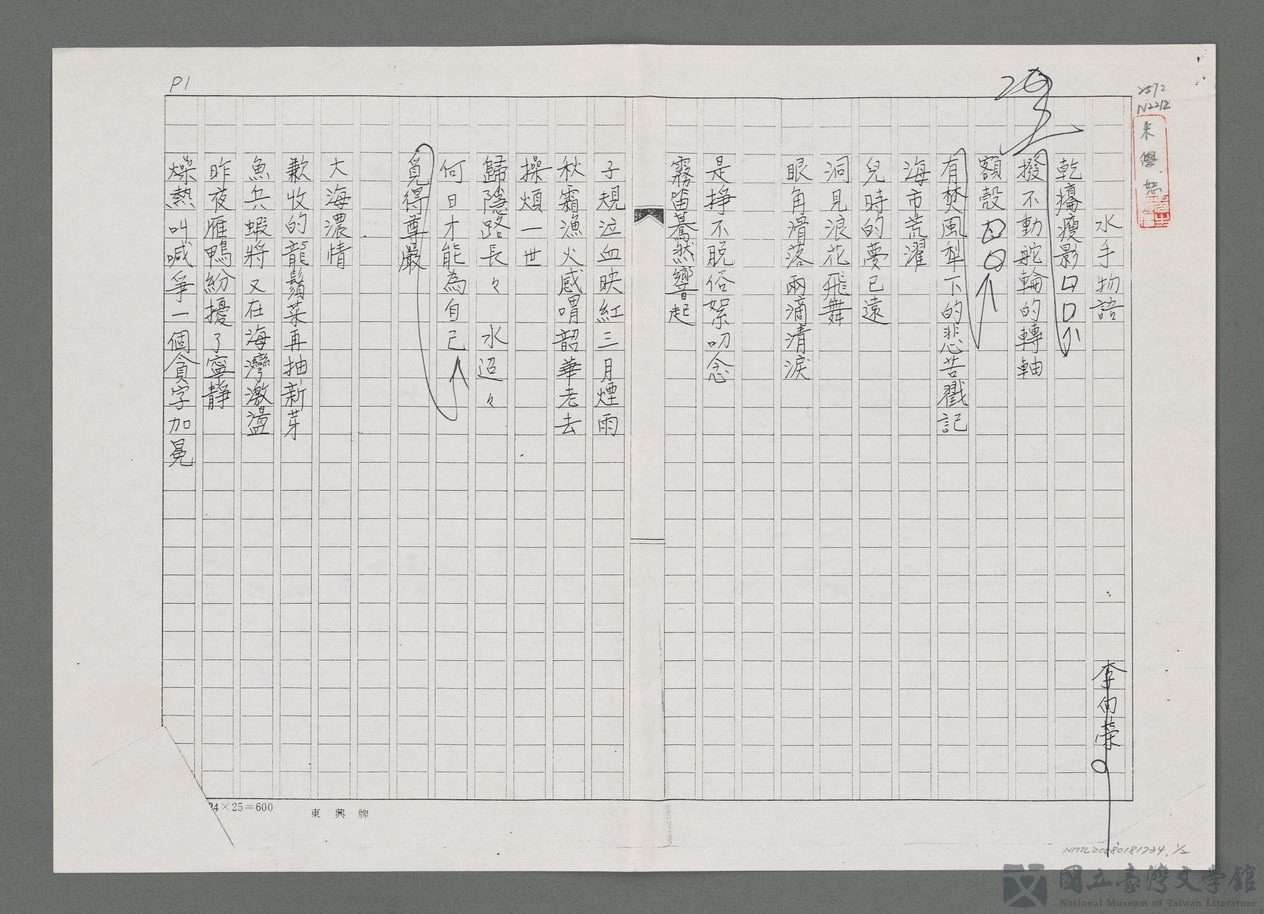 P1
水手物語
李向榮
乾癟瘦影口口
撥不動舵輪的轉軸
額殼
有焚風犁下的悲苦戳記
海市荒濯
兒時的夢已遠
洞見浪花飛舞
眼角滑落兩滴清淚
是掙不脫俗絮叨念
霧笛驀然響起
子規泣血映紅三月煙雨
秋霜漁火感喟韶華老去
操煩一世
歸隱路長々 水迢々
何日才能為自己
覓得尊嚴
大海濃情
歉收的龍鬚菜再抽新芽
魚兵蝦將又在海灣激盪
昨夜雁鴨紛擾了寧靜
燥熱叫喊爭一個貪字加冕
24×25=600
東興牌
國立臺灣文學館
National Museum of Taiwan Literature